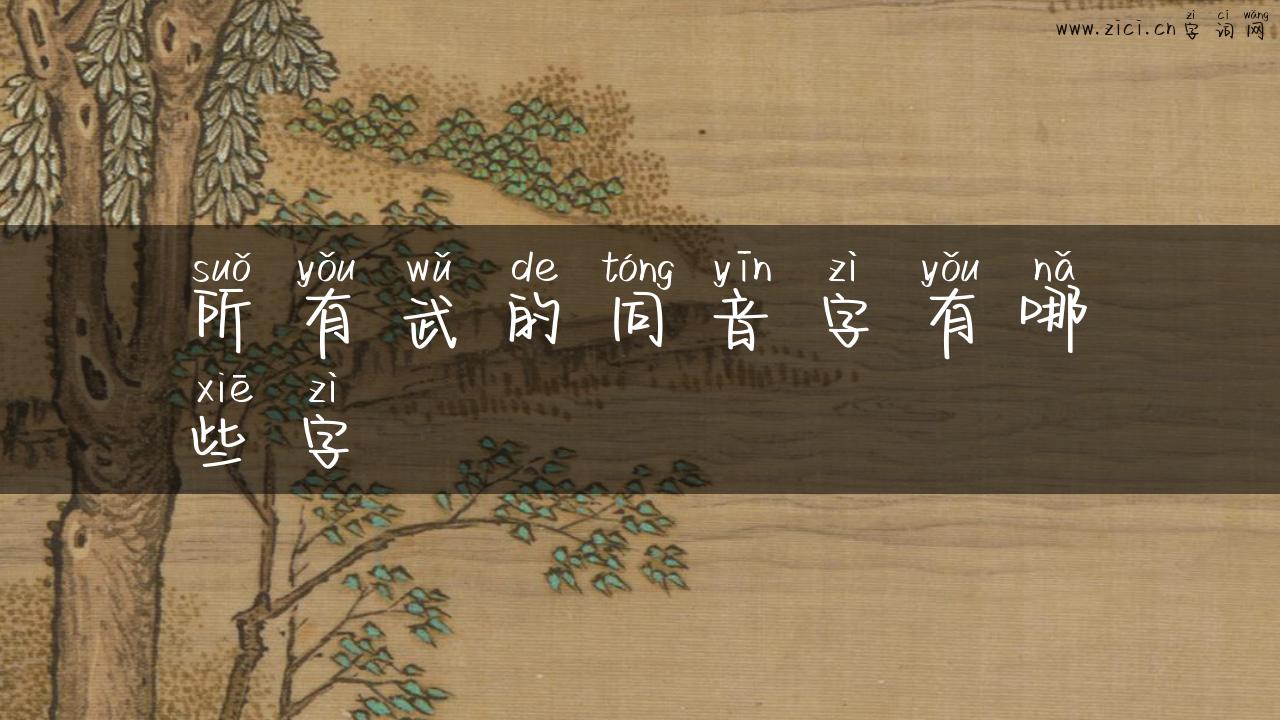 zì cí wǎng
www.zici.cn 字 词 网
suǒ yǒu wǔ de tóng yīn zì yǒu nǎ
所 有 武 的 同 音 字 有 哪
xiē zì
些 字